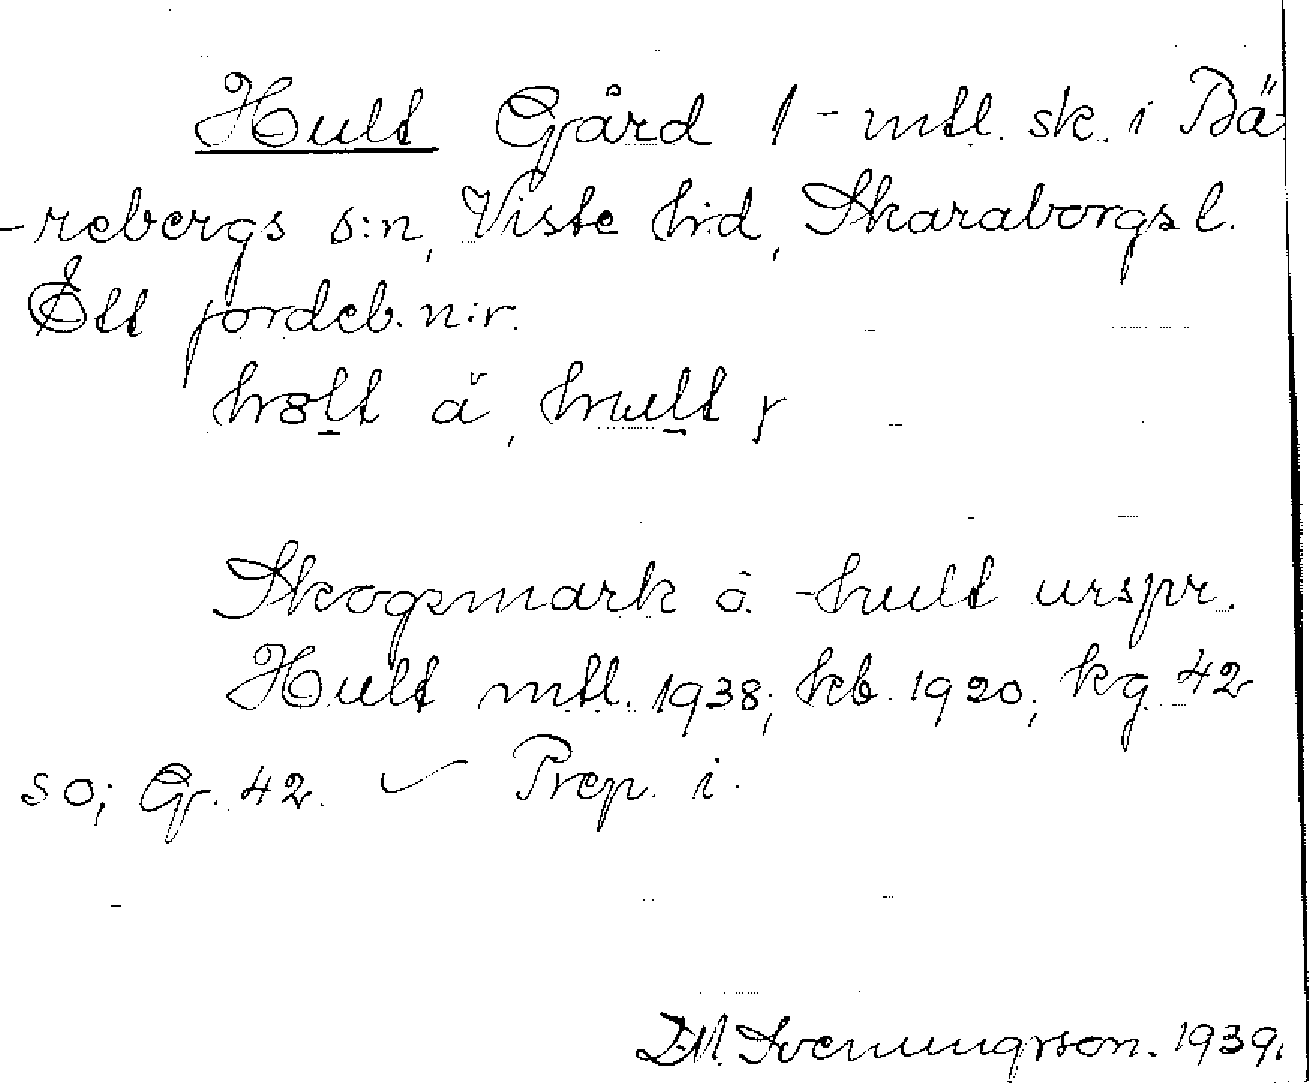 Hult Gård 1 - mtl. sk. i Bä-
-rebergs s:n, Viste h:d, Skaraborgs l.
Ett jordeb. n:r.
hult
Skogsmark o. -hult urspr.
Hult mtl. 1938; kb. 1920; kg 42
SO; Gr. 42. Prep. i.
Svenungsson. 1939.